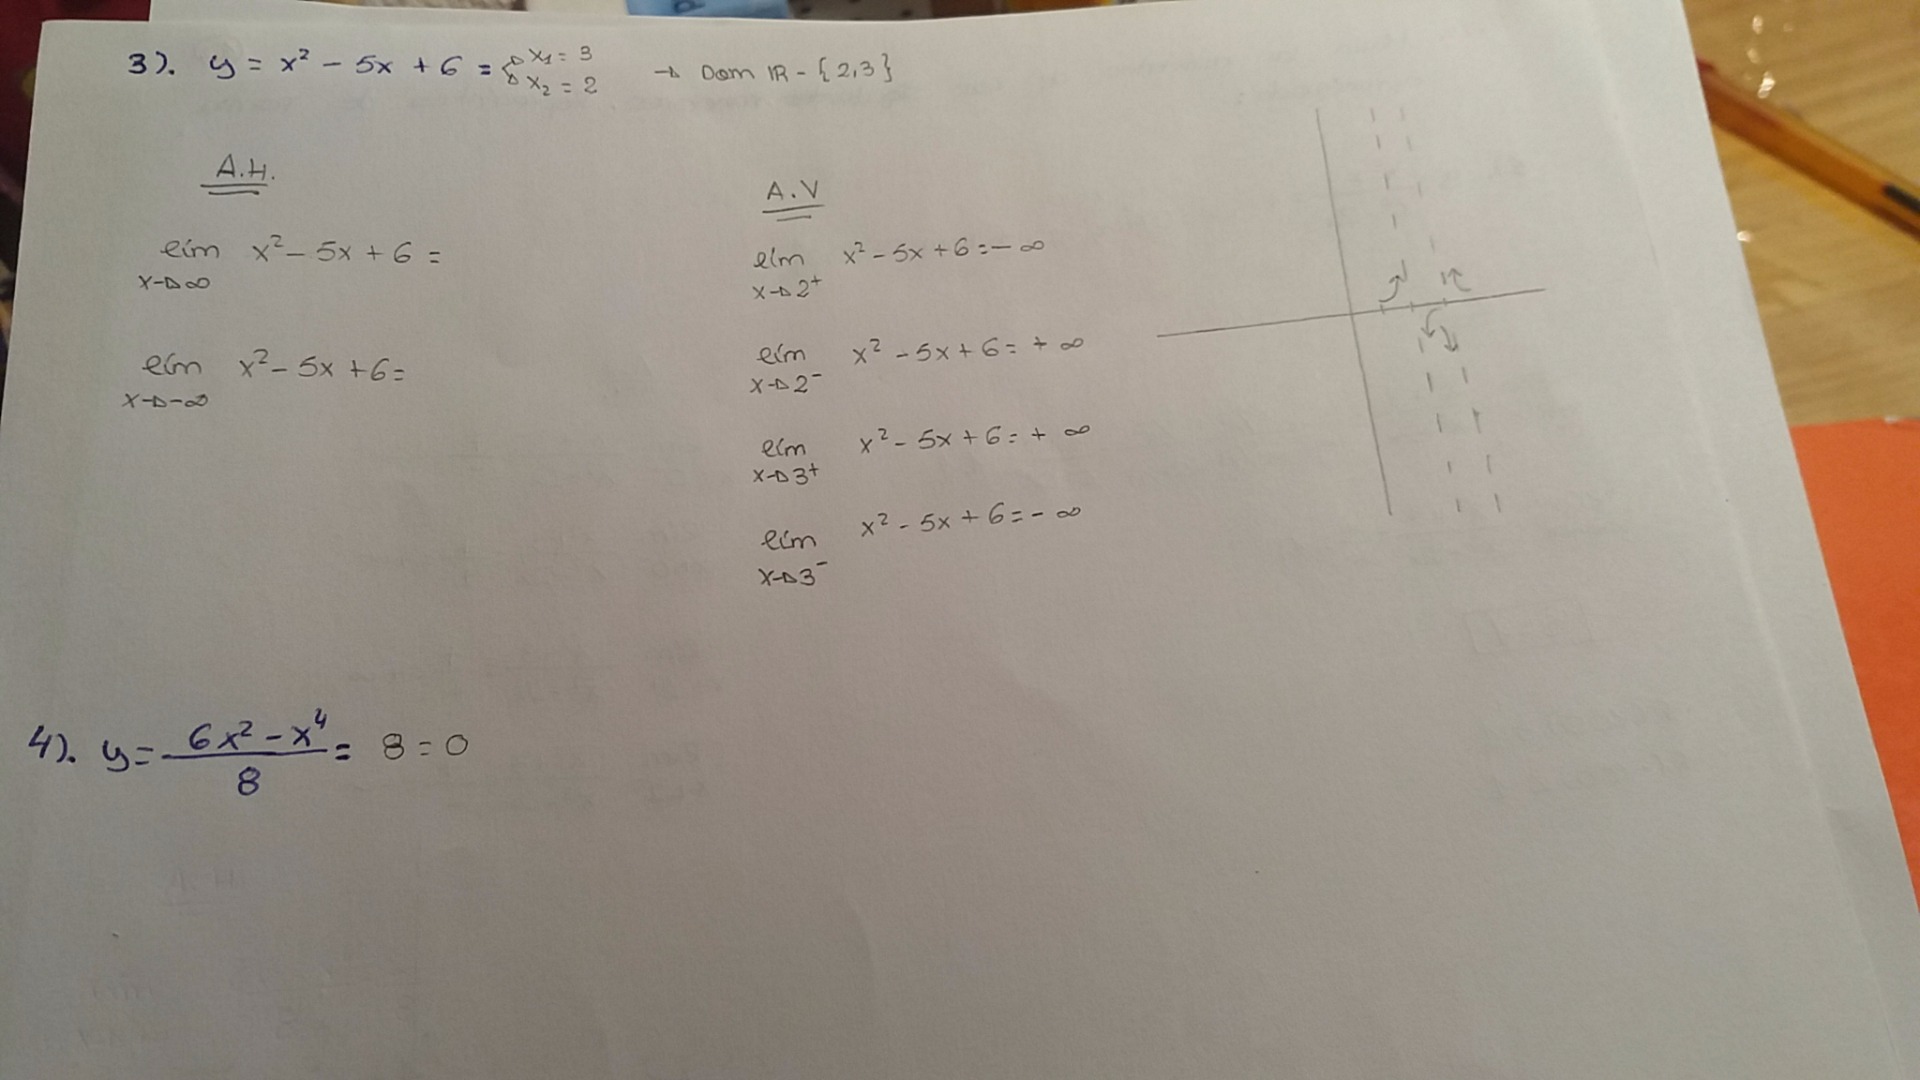 3). y = x² - 5x + 6 = x₁ = 3 x₂ = 2 → Dom IR - {2,3}
A.H.
lím x→∞ x² - 5x + 6 =
lím x→-∞ x² - 5x + 6 =
A.V
lím x→2⁺ x² - 5x + 6 = - ∞
lím x→2⁻ x² - 5x + 6 = + ∞
lím x→3⁺ x² - 5x + 6 = + ∞
lím x→3⁻ x² - 5x + 6 = - ∞
4). y = (6x² - x⁴)/8 = 8 = 0